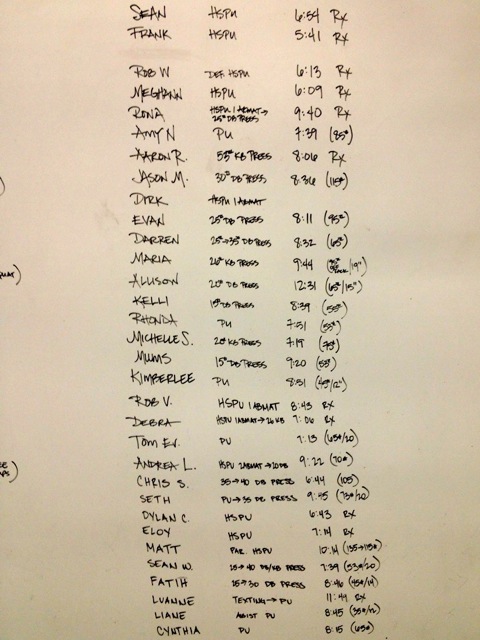 SEAN HSPU 6:54 Rx
FRANK HSPU 5:41 Rx
ROB W DEF. HSPU 6:13 Rx
MEGHANN HSPU 6:09 Rx
RONA HSPU 1 ABMAT→ 25# DB PRESS 9:40 Rx
AMY N PU 7:39 (85#)
AARON R. 53# KB PRESS 8:06 Rx
JASON M. 30# DB PRESS 8:36 (115#)
DIRK HSPU 1 ABMAT
EVAN 25# DB PRESS 8:11 (95#)
DARREN 25→35# DB PRESS 8:32 (65#)
MARIA 26# KB PRESS 9:44
ALLISON 20# DB PRESS 12:31 (65#/15")
KELLI 15# DB PRESS 8:39 (55#)
RHONDA PU 7:51 (53#)
MICHELLE S. 20# KB PRESS 7:19 (73#)
MUMS 15# DB PRESS 9:20 (53#)
KIMBERLEE PU 8:51 (45#/12")
ROB V. HSPU 1 ABMAT 8:43 Rx
DEBRA HSPU 1 ABMAT→26 KB 7:06 Rx
TOM EV. PU 7:13 (65#/20)
ANDREA L. HSPU 2 ABMAT→20 DB 9:22 (70#)
CHRIS S. 35→40 DB PRESS 6:44 (105)
SETH PU→35 DB PRESS 9:45 (73#/20)
DYLAN C. HSPU 6:43 Rx
ELOY HSPU 7:14 Rx
MATT PAR. HSPU 10:14 (135→115#)
SEAN W. 25→40 DB/KB PRESS 7:39 (53#/20)
FATIH 25→30 DB PRESS 8:46 (45#/14)
LUANNE TEXTING→PU 11:44 Rx
LIANE ASSIST PU 8:45 (35#/12)
CYNTHIA PU 8:15 (65#)